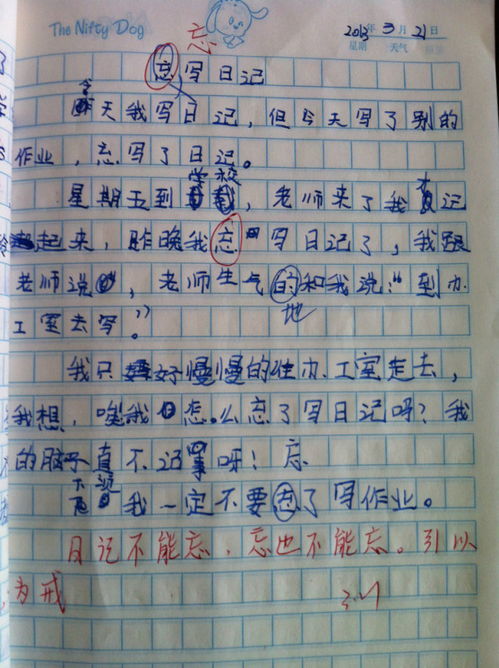 The Nifty Dog
忘
2013年3月21日
星期 天气
忘写日记
今天我写日记，但今天写了别的
作业，忘写了日记。
学校
星期五到，老师来了我才记
起来，昨晚我忘写日记了，我跟
老师说，老师生气的和我说：“到办
地
工室去写。”
我只好慢慢的往办工室走去，
我想，唉我怎么忘了写日记吗？我
的脑子真不记事呀！忘
下
我一定不要忘了写作业。
日记不能忘，忘也不能忘。引以
为戒